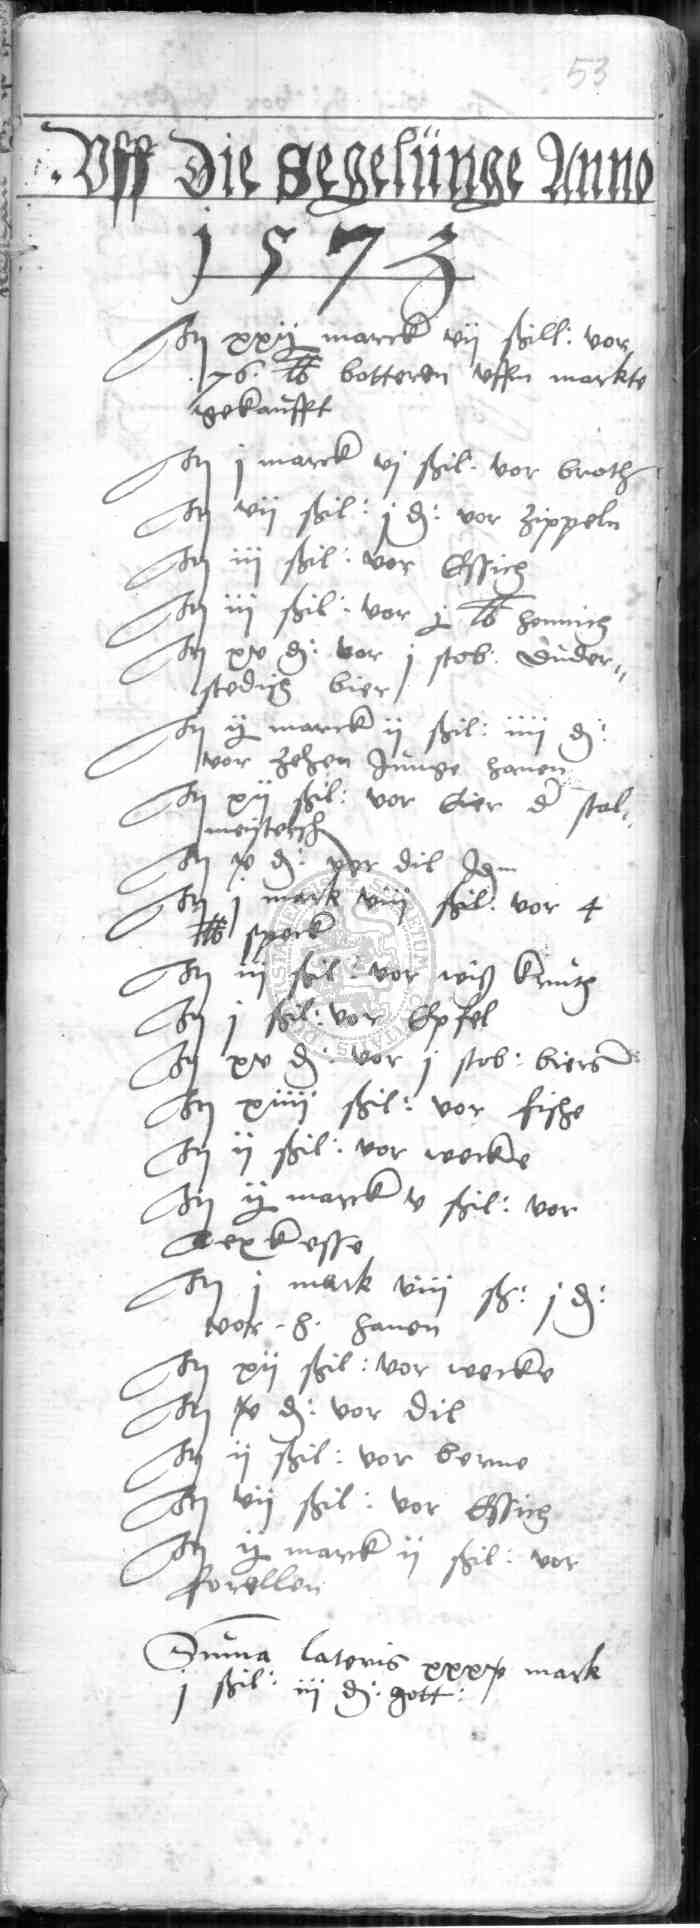 53
Uff Die Segelünge Anno
1573
It xxij marck vij schill: vor
76 lb botteren uffm markte
gekaufft
It j marck vj schil: vor broth
It vij schil: j d: vor Zippeln
It iij schil: vor Essich
It iij schil: vor j lb honnich
It xv d: vor j stob: Duder-
stedisch bier
It ij marck ij schil: iiij d:
vor zehen Junge hanen
It xij schil: vor Eier d stal-
meistersch
It v d: vor dil
It j mark viij schil: vor 4
lb speck
It iij schil: vor wiß kruth
It j schil: vor Epfel
It xv d: vor j stob: biers
It xiiij schil: vor fische
It ij schil: vor wecke
It ij marck v schil: vor
kesse
It j mark viij sch: j d:
vor hanen
It xij schil: vor wecke
It v d: vor dil
It ij schil: vor berme
It vij schil: vor Essich
It ij marck ij schil: vor
forellen
Suma lateris xxxv mark
j schil: iij d: gott: